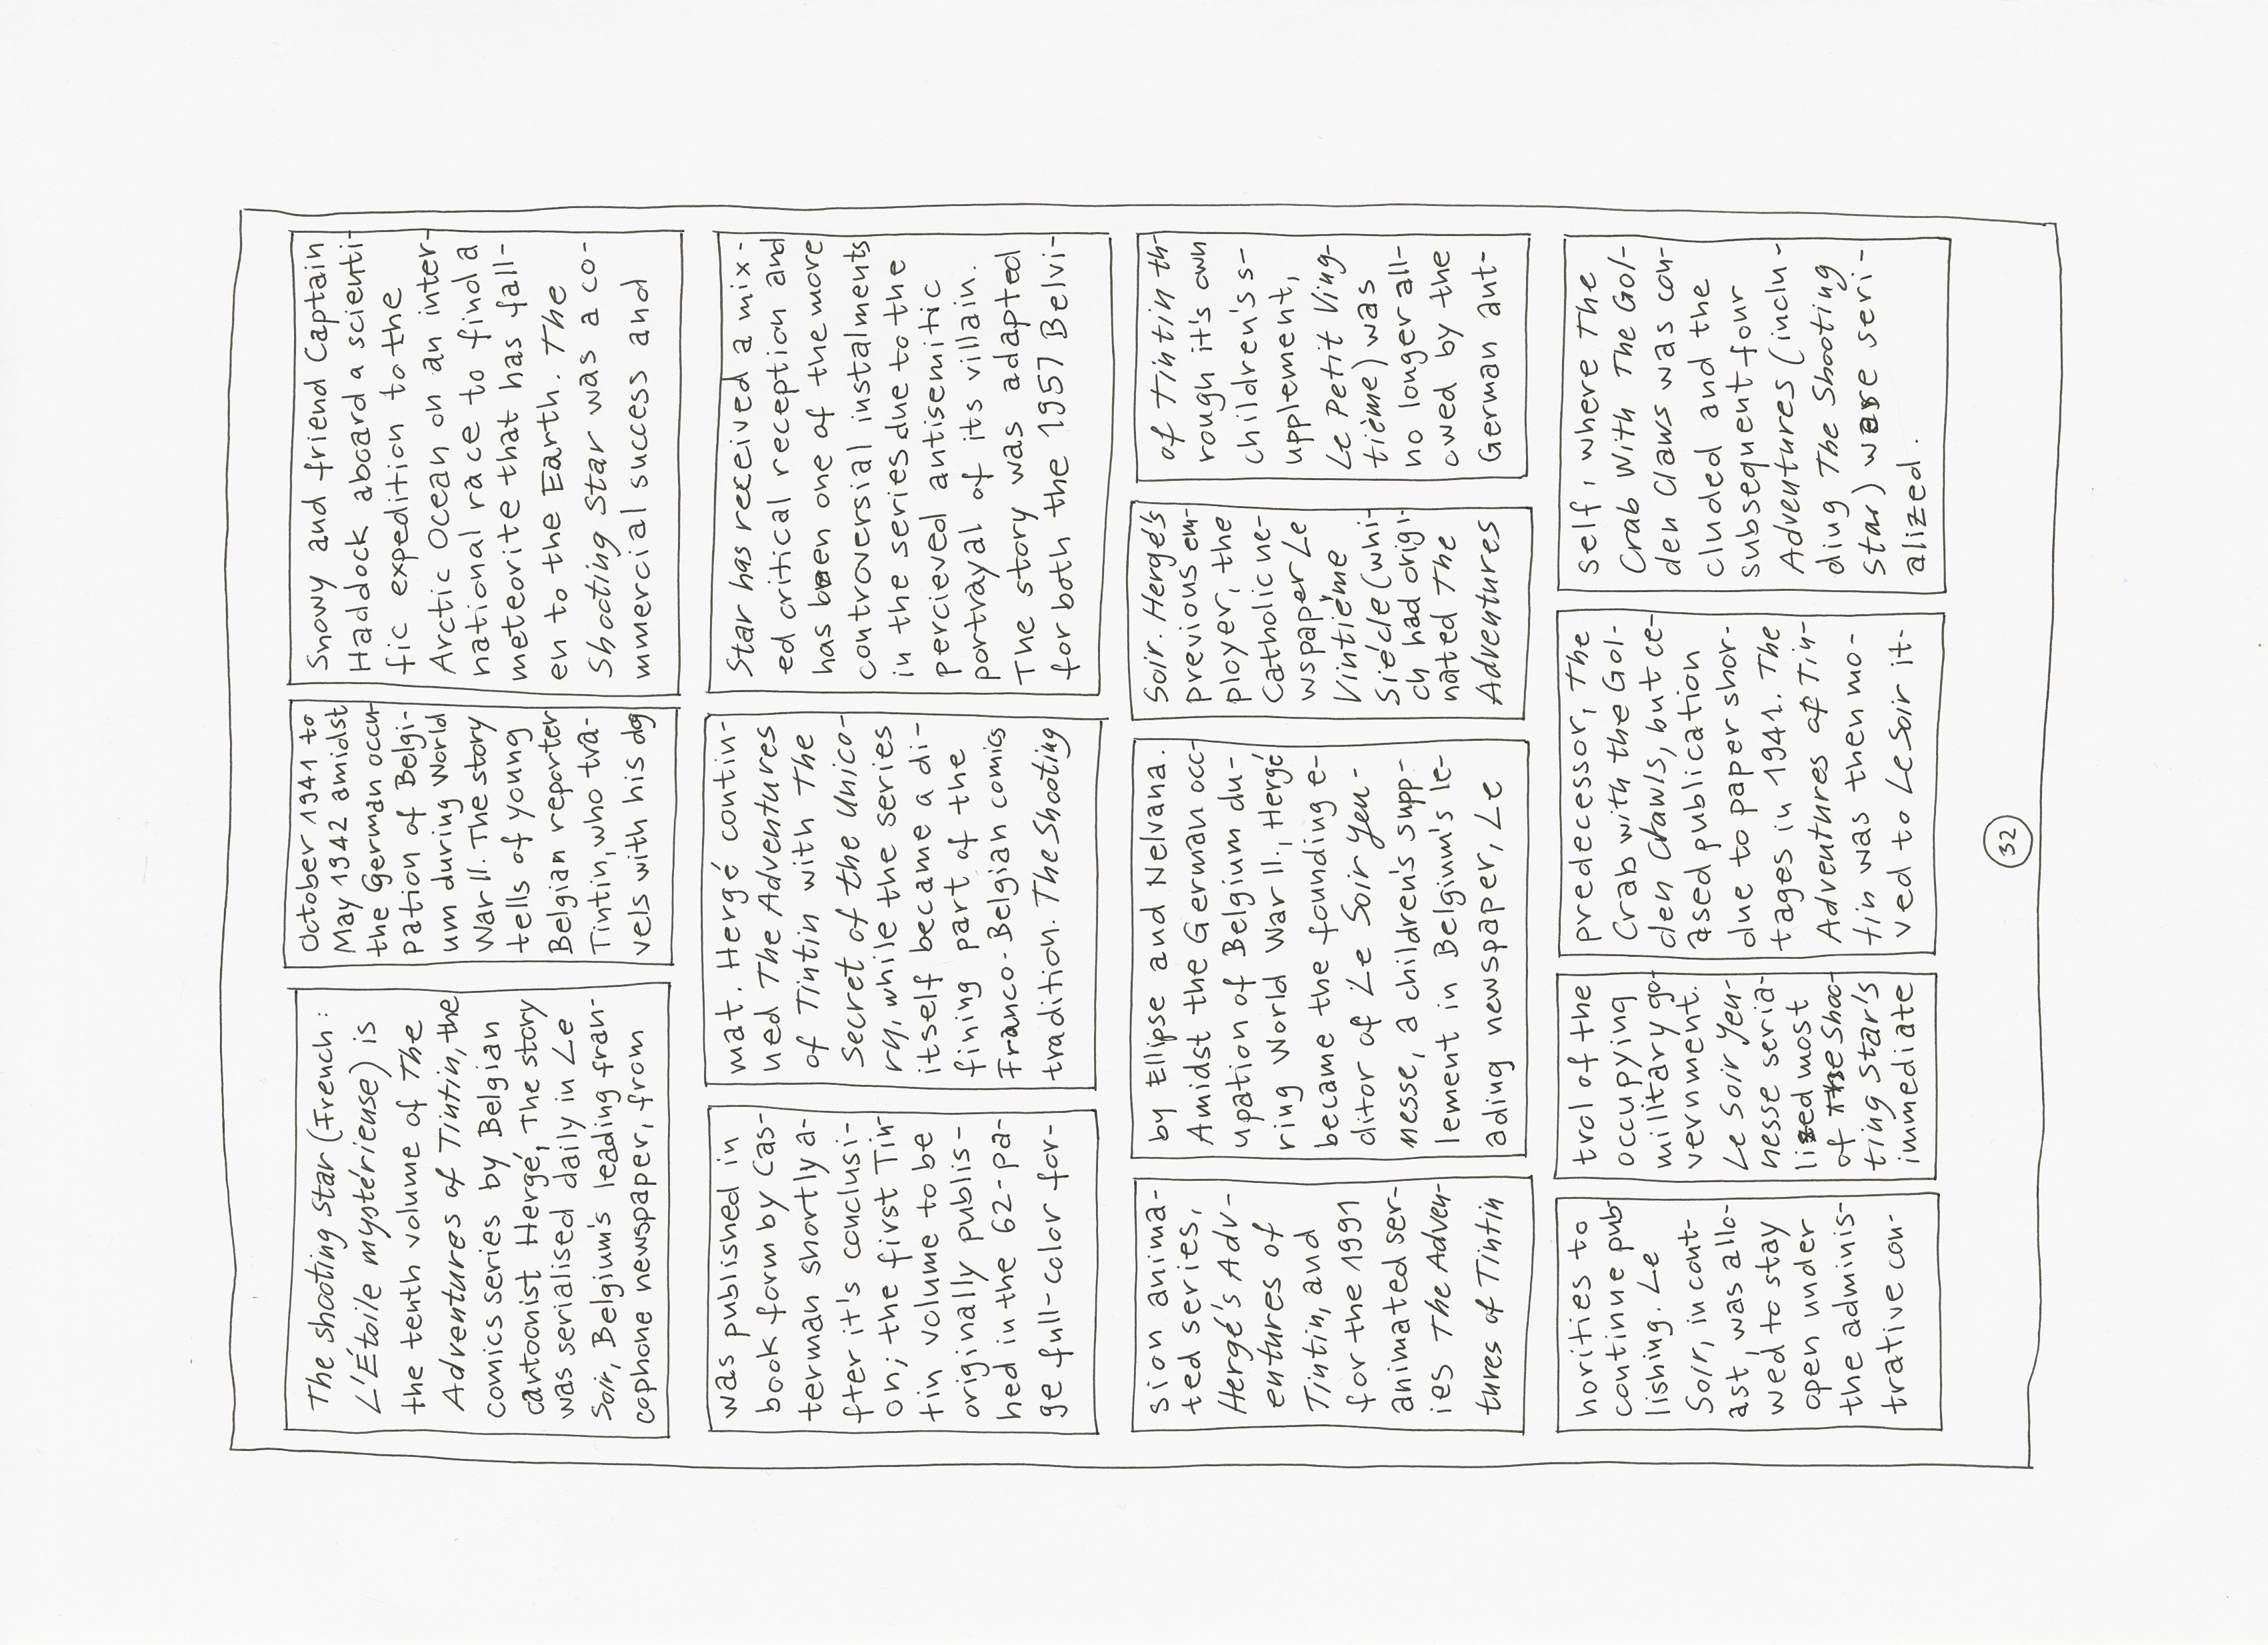 The shooting star (French:
L'Étoile mystérieuse) is
the tenth volume of The
Adventures of Tintin, the
comics series by Belgian
cartoonist Hergé, The story
was serialised daily in Le
Soir, Belgium's leading fran-
cophone newspaper, from
October 1941 to
May 1942 amidst
the German occu-
pation of Belgi-
um during World
War II. The story
tells of young
Belgian reporter
Tintin, who tra-
vels with his dog
Snowy and friend Captain
Haddock aboard a scienti-
fic expedition to the
Arctic Ocean on an inter-
national race to find a
meteorite that has fall-
en to the Earth. The
Shooting Star was a co-
mmercial success and
was published in
book form by Cas-
terman shortly a-
fter it's conclusi-
on; the first Tin-
tin volume to be
originally publis-
hed in the 62-pa-
ge full-color for-
mat. Hergé contin-
ued The Adventures
of Tintin with The
Secret of the Unico-
rn, while the series
itself became a di-
fining part of the
Franco-Belgian comics
tradition. The Shooting
Star has received a mix-
ed critical reception and
has been one of the more
controversial instalments
in the series due to the
percieved antisemitic
portrayal of its villain.
The story was adapted
for both the 1957 Belvi-
sion anima-
ted series,
Hergé's Adv-
entures of
Tintin, and
for the 1991
animated ser-
ies The Adven-
tures of Tintin
by Ellipse and Nelvana.
Amidst the German occ-
upation of Belgium du-
ring World War II, Hergé
became the founding e-
ditor of Le Soir Yeu-
nesse, a children's supp-
lement in Belgium's le-
ading newspaper, Le
Soir. Hergé's
previous em-
ployer, the
Catholic ne-
wspaper Le
Vintiéme
Siécle (whi-
ch had origi-
nated The
Adventures
of Tintin th-
rough it's own
children's s-
upplement,
Le Petit Ving-
tiéme) was
no longer all-
owed by the
German aut-
horities to
continue pub-
lishing. Le
Soir, in cont-
ast, was allo-
wed to stay
open under
the adminis-
trative con-
trol of the
occupying
military go-
vernment.
Le Soir Yeu-
nesse seria-
lised most
of the Shoo-
ting Star's
immediate
predecessor, The
Crab with the Gol-
den Clawls, but ce-
ased publication
due to paper shor-
tages in 1941. The
Adventures of Tin-
tin was then mo-
ved to Le Soir it-
self, where The
Crab With The Gol-
den Claws was con-
cluded and the
subsequent four
Adventures (inclu-
ding The Shooting
Star) were seri-
alized.
32